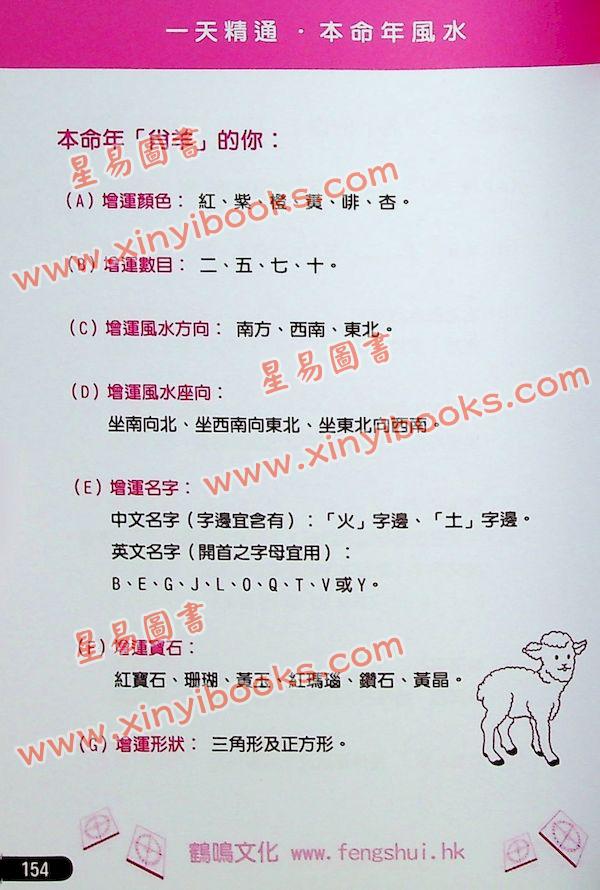 一天精通 · 本命年風水
本命年「肖羊」的你：
星易圖書
(A) 增運顏色： 紅、紫、橙、黃、啡、杏。
www.xinyibooks.com
(B) 增運數目： 二、五、七、十。
(C) 增運風水方向： 南方、西南、東北。
星易圖書
(D) 增運風水座向：
坐南向北、坐西南向東北、坐東北向西南。
www.xinyibooks.com
(E) 增運名字：
中文名字（字邊宜含有）：「火」字邊、「土」字邊。
英文名字（開首之字母宜用）：
B、E、G、J、L、O、Q、T、V或Y。
星易圖書
(F) 增運寶石：
紅寶石、珊瑚、黃玉、紅瑪瑙、鑽石、黃晶。
www.xinyibooks.com
(G) 增運形狀： 三角形及正方形。
鶴鳴文化 www.fengshui.hk
154